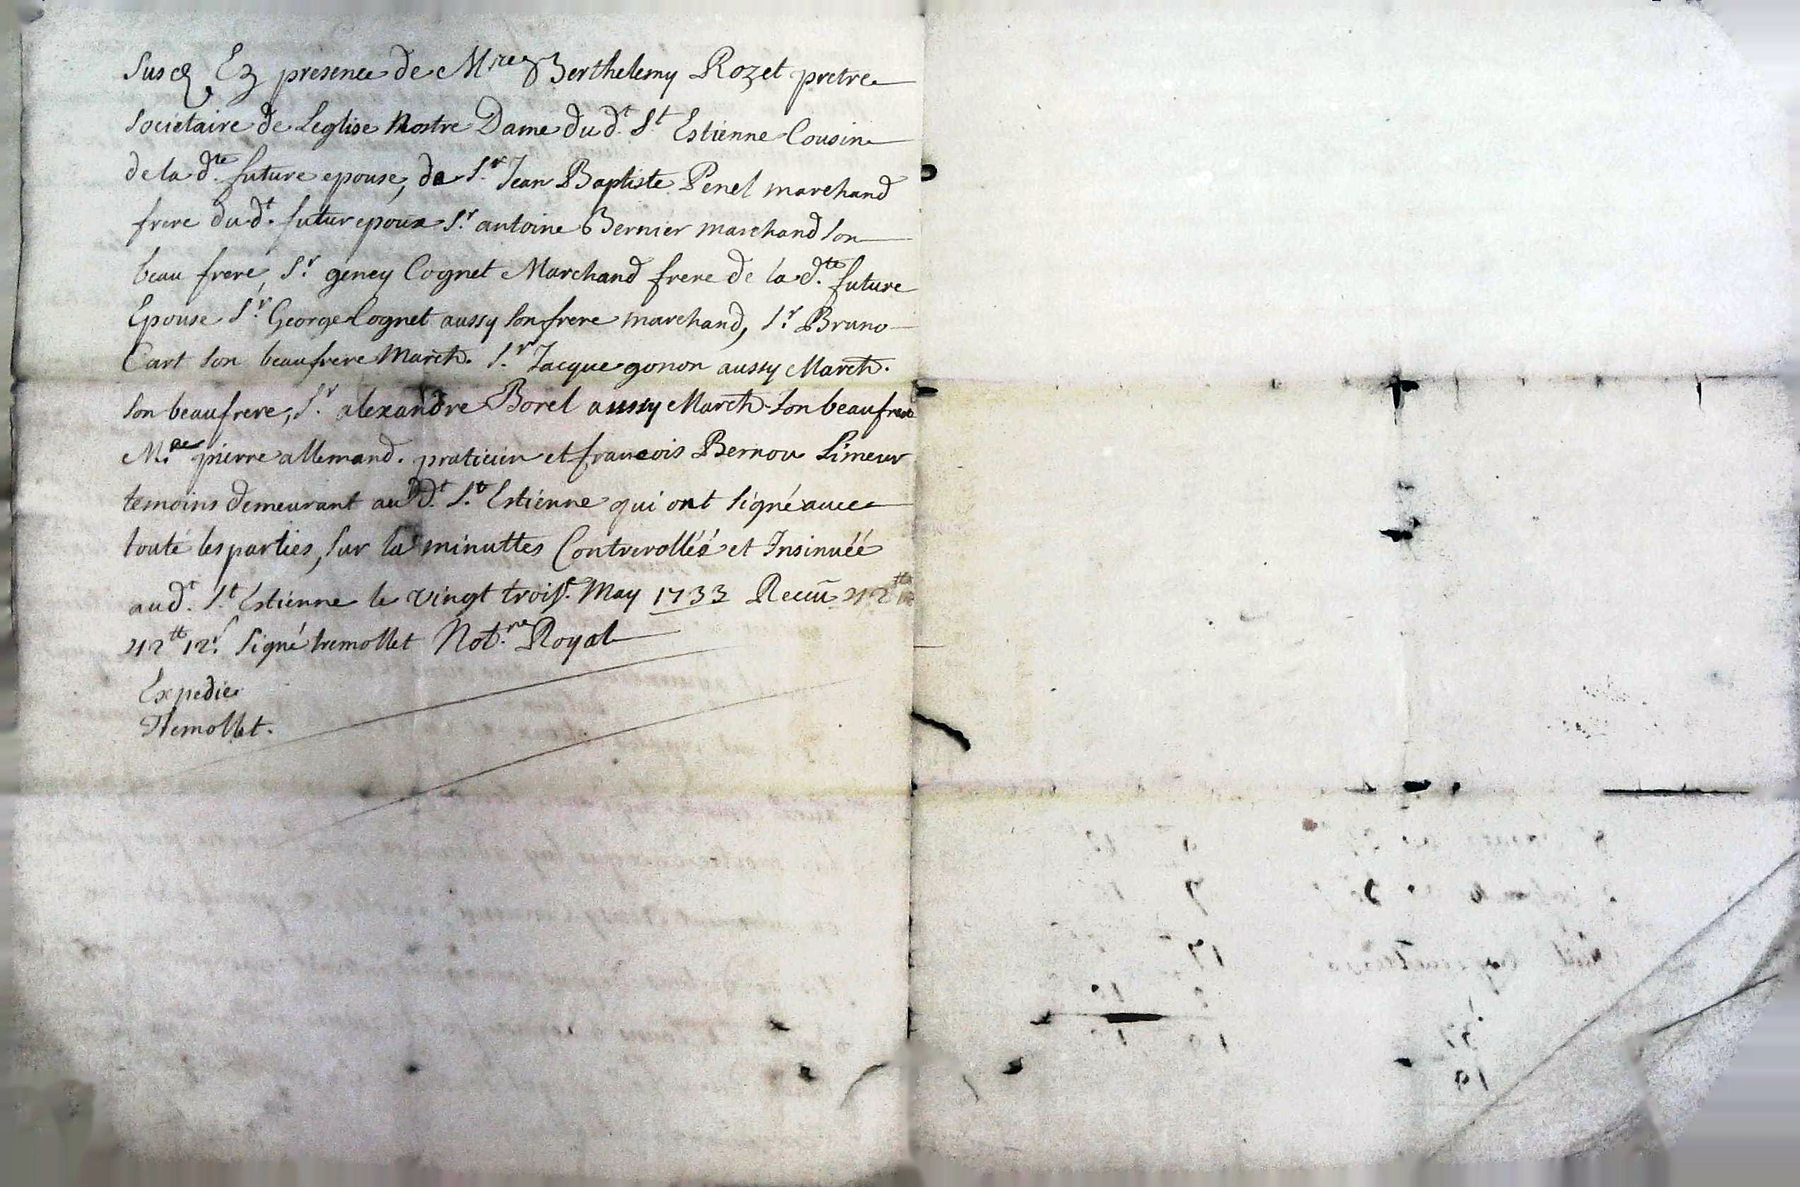 susd Ez presence de Mire Berthelemy Rozet pretre
societaire de Leglise Nostre Dame du dt. St Estienne Cousin
de la dte. future epouse, de Sr. Jean Baptiste Penel marchand
frere du dt. futur epoux Sr. antoine Bernier marchand son
beau frere, Sr. geney Cognet Marchand frere de la dte. future
Epouse Sr. George Cognet aussy son frere marchand, Sr. Bruno
Cart son beaufrere March. Sr. Jacque gonon aussy March.
son beaufrere, Sr. alexandre Borel aussy March. son beaufrere
Mre. pierre allemand. praticien et francois Bernou Limeur
temoins demeurant au dt. St. Estienne qui ont signé avec
touté les parties, sur la minuttes Contrerolléé et Insinuéé
au dt. St. Estienne le vingt trois. May 1733 Receu 42tt
42tt 12s. signé tremollet Not.re Royal
Expedié
Tremollet.